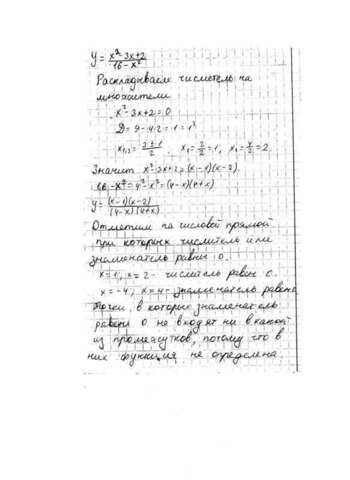 y = (x² - 3x + 2)/(16 - x²)
Раскладываем числитель на
множители
x² - 3x + 2 = 0
D = 9 - 4·2 = 1 = 1²
x₁,₂ = (3±1)/2, x₁ = 2/2 = 1, x₂ = 4/2 = 2
Значит x² - 3x + 2 = (x-1)(x-2)
16 - x² = 4² - x² = (4-x)(4+x)
y = (x-1)(x-2)/(4-x)(4+x)
Отметим на числовой прямой
при которых числитель или
знаменатель равны 0.
x=1, x=2 - числитель равен 0.
x=-4, x=4 - знаменатель равен 0
Точки, в которых знаменатель
равен 0 не входят ни в какой
из промежутков, потому что в
них функция не определена.